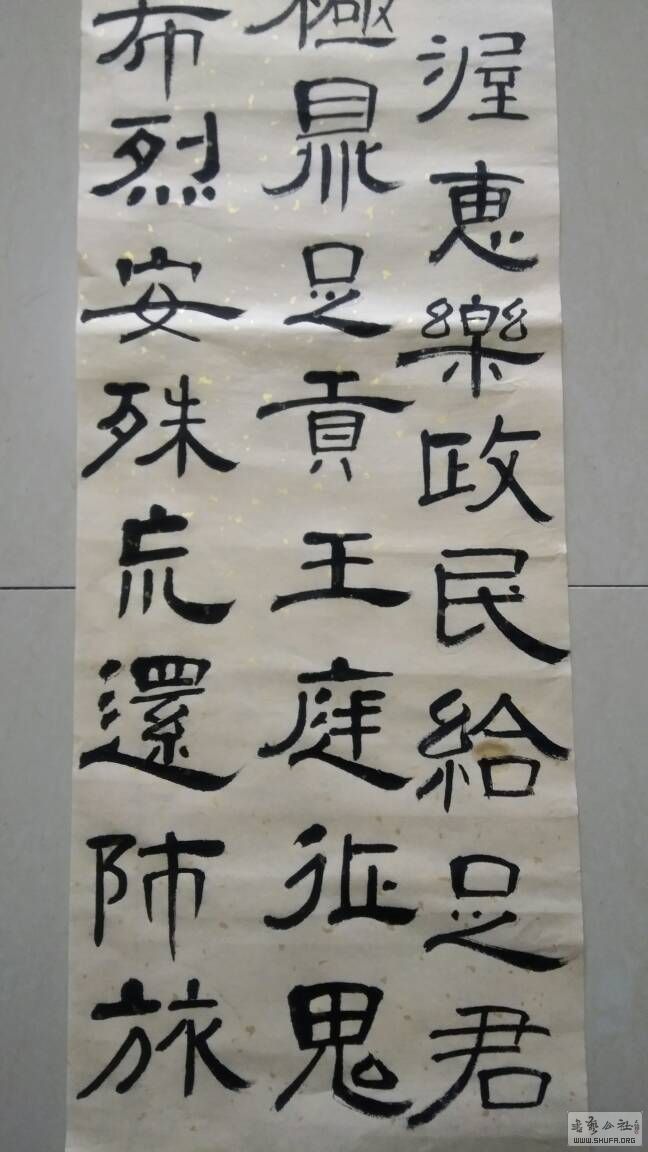 渥惠樂政民給足君
極鼎足貢王庭征鬼
布烈安殊荒還師旅
書藝公社
WWW.SHUFA.ORG